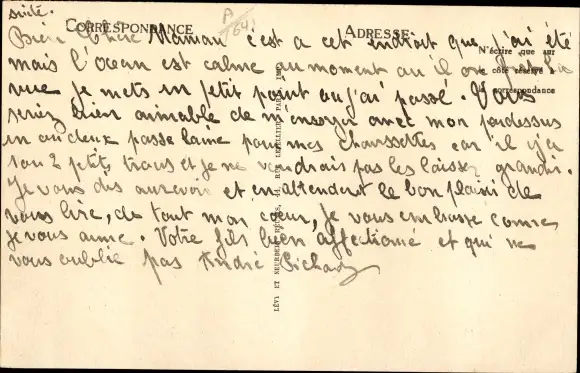 suite.
CORRESPONDANCE
P/641
ADRESSE
Bien chère Maman c'est a cet endroit que j'ai été
N'écrire que sur
mais l'océan est calme au moment où il on
le côté réservé à
la correspondance
vue je mets un petit point ou j'ai passé. Vous
seriez bien aimable de m'envoyer avec mon pardessus
un ou deux passe laine pour mes chaussettes car il y a
2 petits trous et je ne voudrais pas les laisser grandir.
Je vous dis aurevoir et en attendant le bon plaisir de
vous lire, de tout mon cœur, je vous embrasse comme
je vous aime. Votre fils bien affectionné et qui ne
vous oublie pas André Pichard
LÉVY ET NEURDEIN RÉUNIS, 44, RUE LETELLIER, PARIS